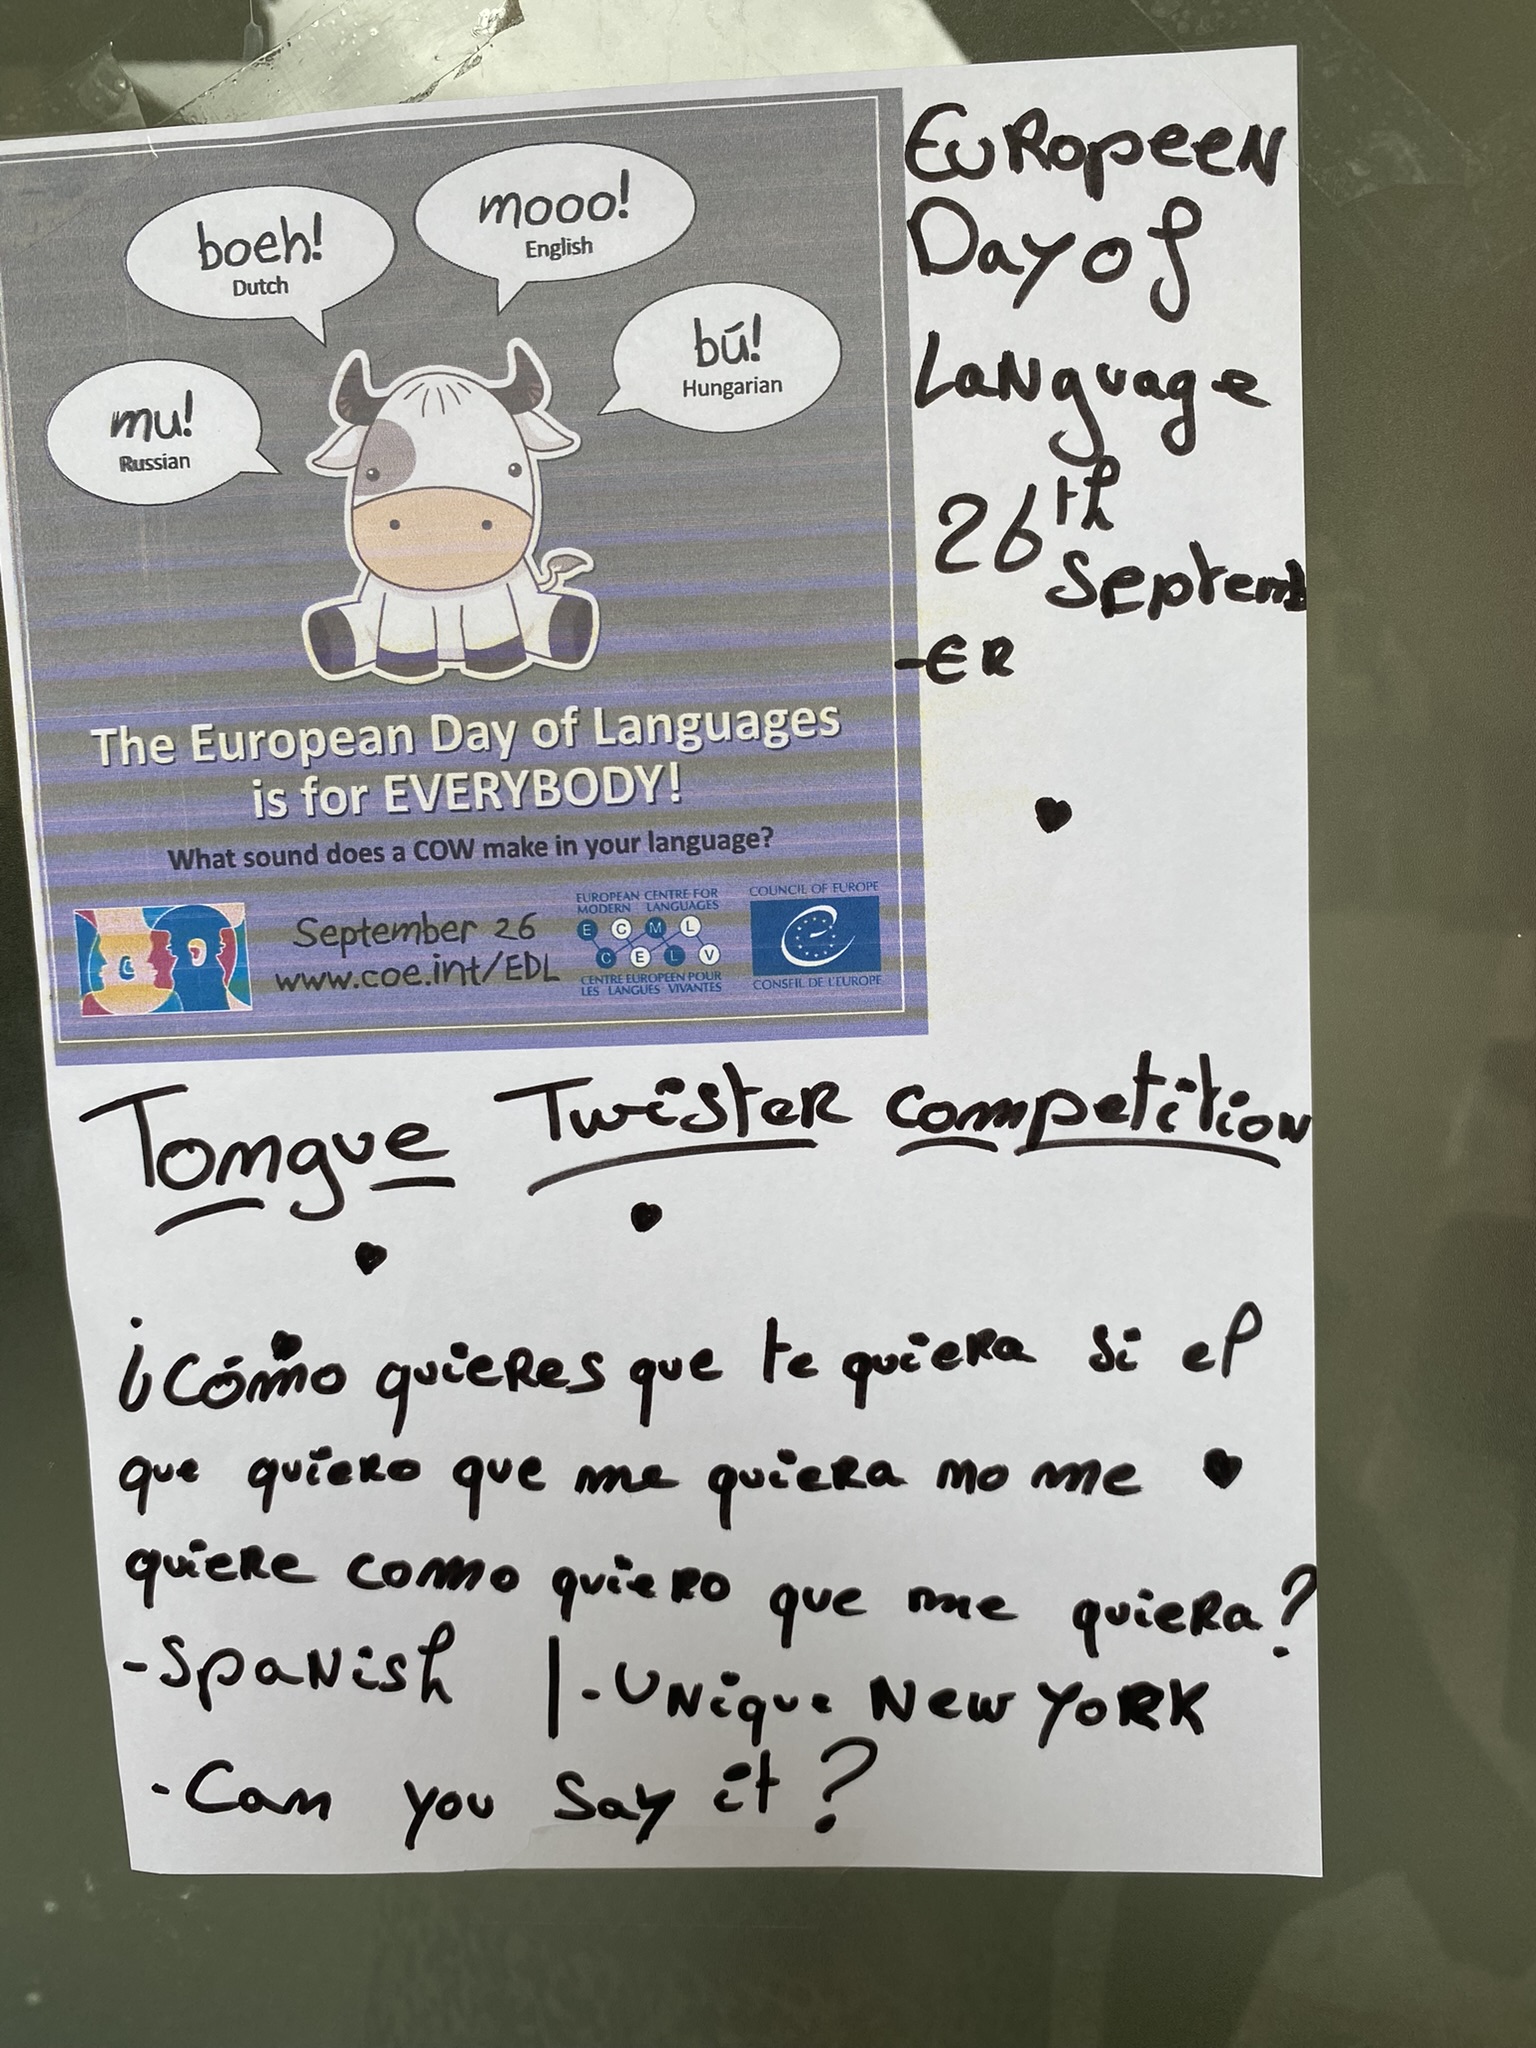 mooo!
English
boeh!
Dutch
bú!
Hungarian
mu!
Russian
The European Day of Languages
is for EVERYBODY!
What sound does a COW make in your language?
September 26
www.coe.int/EDL
EUROPEAN CENTRE FOR
MODERN LANGUAGES
E C M L
C E L V
CENTRE EUROPEEN POUR
LES LANGUES VIVANTES
COUNCIL OF EUROPE
CONSEIL DE L'EUROPE
EUROPEEN
Day of
Language
26th
Septemb
-ER
Tongue Twister competition
¿Cómo quieres que te quiera si el
que quiero que me quiera no me
quiere como quiero que me quiera?
-Spanish | -Unique New York
-Can you say it?